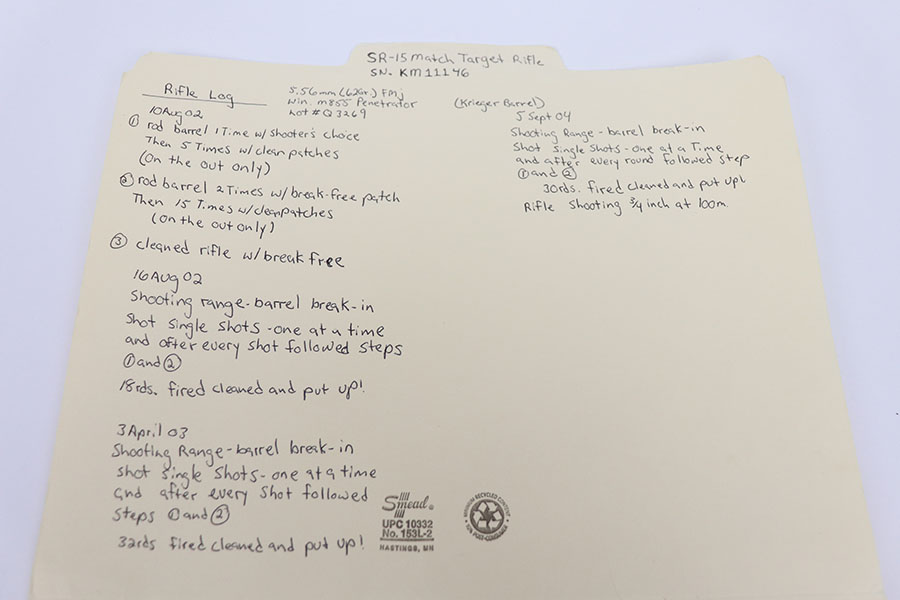 SR-15 Match Target Rifle
SN. KM11146
Rifle Log
5.56mm (62Gr.) FMJ
Win. M855 Penetrator
Lot # Q3269
10 Aug 02
① rod barrel 1 Time w/ Shooter's choice
Then 5 Times w/ clean patches
(On the out only)
② rod barrel 2 Times w/ break-free patch
Then 15 Times w/ clean patches
(On the out only)
③ cleaned rifle w/ break free
16 Aug 02
Shooting range - barrel break-in
Shot single shots - one at a time
and after every shot followed steps
① and ②
18rds. fired cleaned and put up!
3 April 03
Shooting Range - barrel break-in
Shot single shots - one at a time
and after every shot followed
steps ① and ②
32rds fired cleaned and put up!
(Krieger Barrel)
5 Sept 04
Shooting Range - barrel break-in
Shot single shots - one at a Time
and after every round followed step
① and ②
30rds. fired cleaned and put up!
Rifle Shooting 3/4 inch at 100m
Smead®
UPC 10332
No. 153L-2
HASTINGS, MN
MINIMUM RECYCLED CONTENT
10% POST-CONSUMER